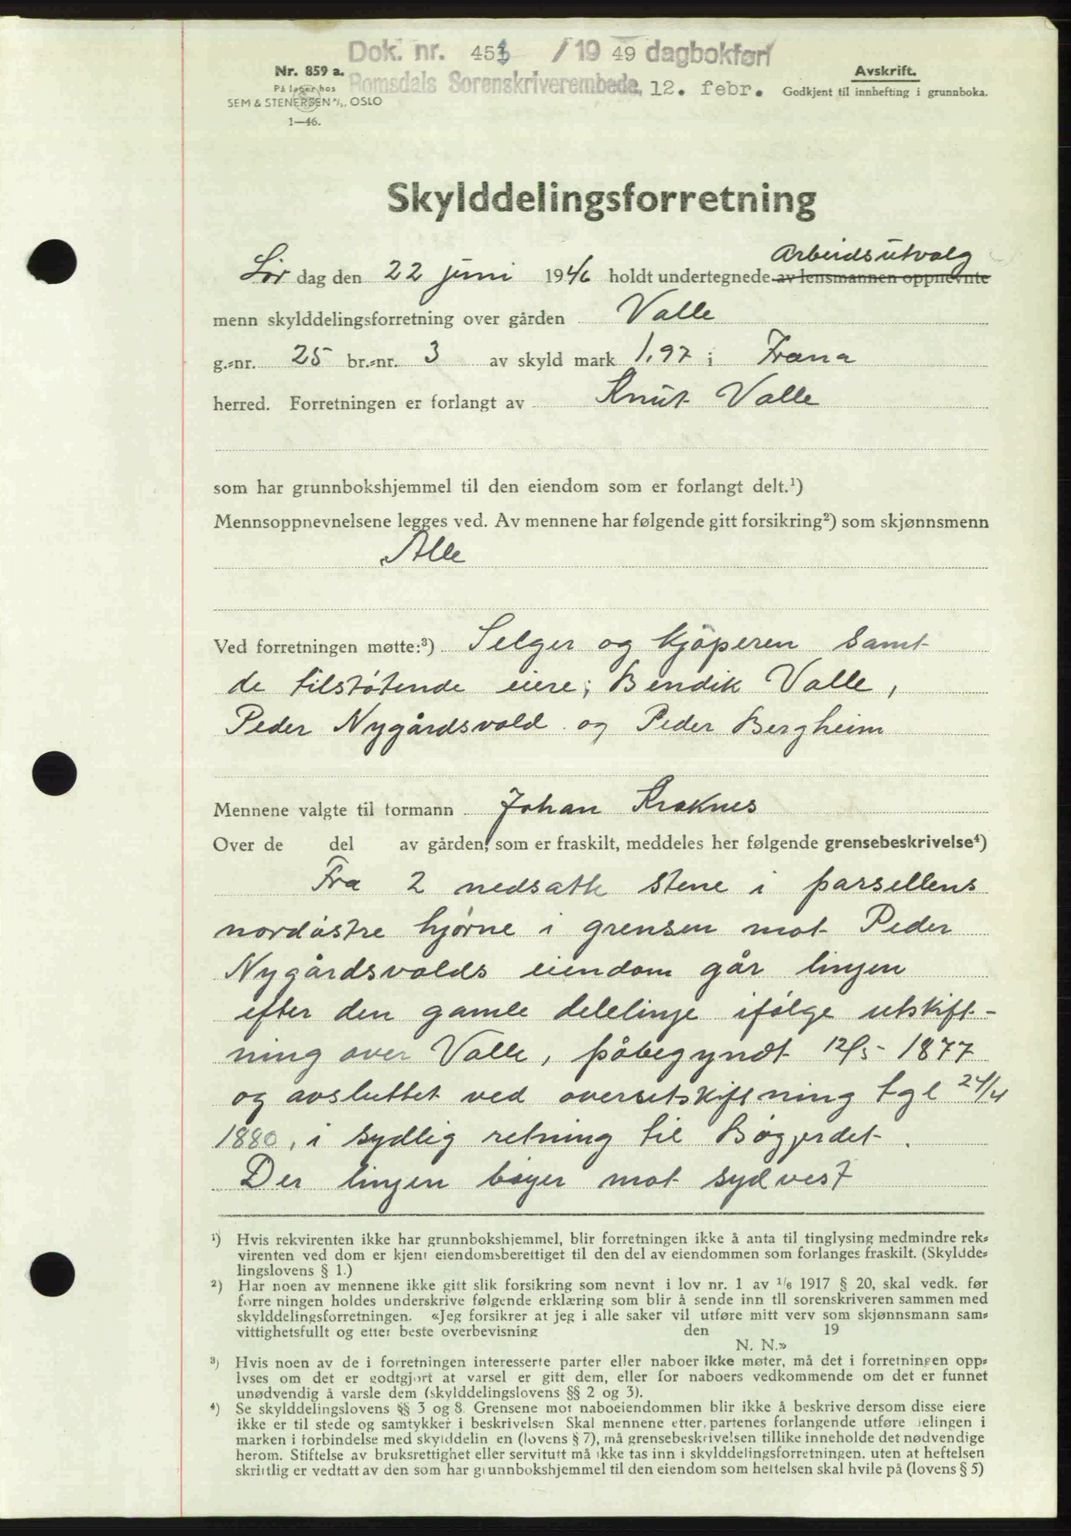 Dok. nr. 453 / 19 49 dagbokført
Romsdals Sorenskriverembede, 12. febr.
Nr. 859 a.
På lager hos
SEM & STENERSEN A/S, OSLO
1—46.
Avskrift.
Godkjent til innhefting i grunnboka.
Skylddelingsforretning
Arbeidsutvalg
Lør dag den 22 juni 1946 holdt undertegnede av lensmannen oppnevnte
menn skylddelingsforretning over gården Valle
g.-nr. 25 br.-nr. 3 av skyld mark 1,97 i Fræna
herred. Forretningen er forlangt av Knut Valle
som har grunnbokshjemmel til den eiendom som er forlangt delt.¹)
Mennsoppnevnelsene legges ved. Av mennene har følgende gitt forsikring²) som skjønnsmenn
Alle
Ved forretningen møtte:³) Selger og kjøperen samt
de tilstøtende eiere; Bendik Valle,
Peder Nygårdsvold og Peder Bergheim
Mennene valgte til formann Johan Kraknes
Over de del av gården, som er fraskilt, meddeles her følgende grensebeskrivelse⁴)
Fra 2 nedsatte stene i parsellens
nordøstre hjørne i grensen mot Peder
Nygårdsvolds eiendom går linjen
efter den gamle delelinje ifølge utskift-
ning over Valle, påbegyndt 12/5- 1877
og avsluttet ved oversutskiftning tgl 24/4
1880, i sydlig retning til Bøgjerdet.
Der linjen bøyer mot sydvest
¹) Hvis rekvirenten ikke har grunnbokshjemmel, blir forretningen ikke å anta til tinglysing medmindre rek-
virenten ved dom er kjent eiendomsberettiget til den del av eiendommen som forlanges fraskilt. (Skyldde-
lingslovens § 1.)
²) Har noen av mennene ikke gitt slik forsikring som nevnt i lov nr. 1 av 1/6 1917 § 20, skal vedk. før
forretningen holdes underskrive følgende erklæring som blir å sende inn til sorenskriveren sammen med
skylddelingsforretningen. «Jeg forsikrer at jeg i alle saker vil utføre mitt verv som skjønnsmann sam-
vittighetsfullt og etter beste overbevisning den 19
N. N.»
³) Hvis noen av de i forretningen interesserte parter eller naboer ikke møter, må det i forretningen opp-
lyses om det er godtgjort at varsel er gitt dem, eller for naboers vedkommende om det er funnet
unødvendig å varsle dem (skylddelingslovens §§ 2 og 3).
⁴) Se skylddelingslovens §§ 3 og 8. Grensene mot naboeiendommen blir ikke å beskrive dersom disse eiere
ikke er til stede og samtykker i beskrivelsen Skal mennene etter partenes forlangende utføre delingen i
marken i forbindelse med skylddelingen (lovens § 7), må grensebeskrivelsen tillike inneholde det nødvendige
herom. Stiftelse av bruksrettighet eller servitutt må ikke tas inn i skylddelingsforretningen. uten at heftelsen
skriftlig er vedtatt av den som har grunnbokshjemmel til den eiendom som heftelsen skal hvile på (lovens § 5)